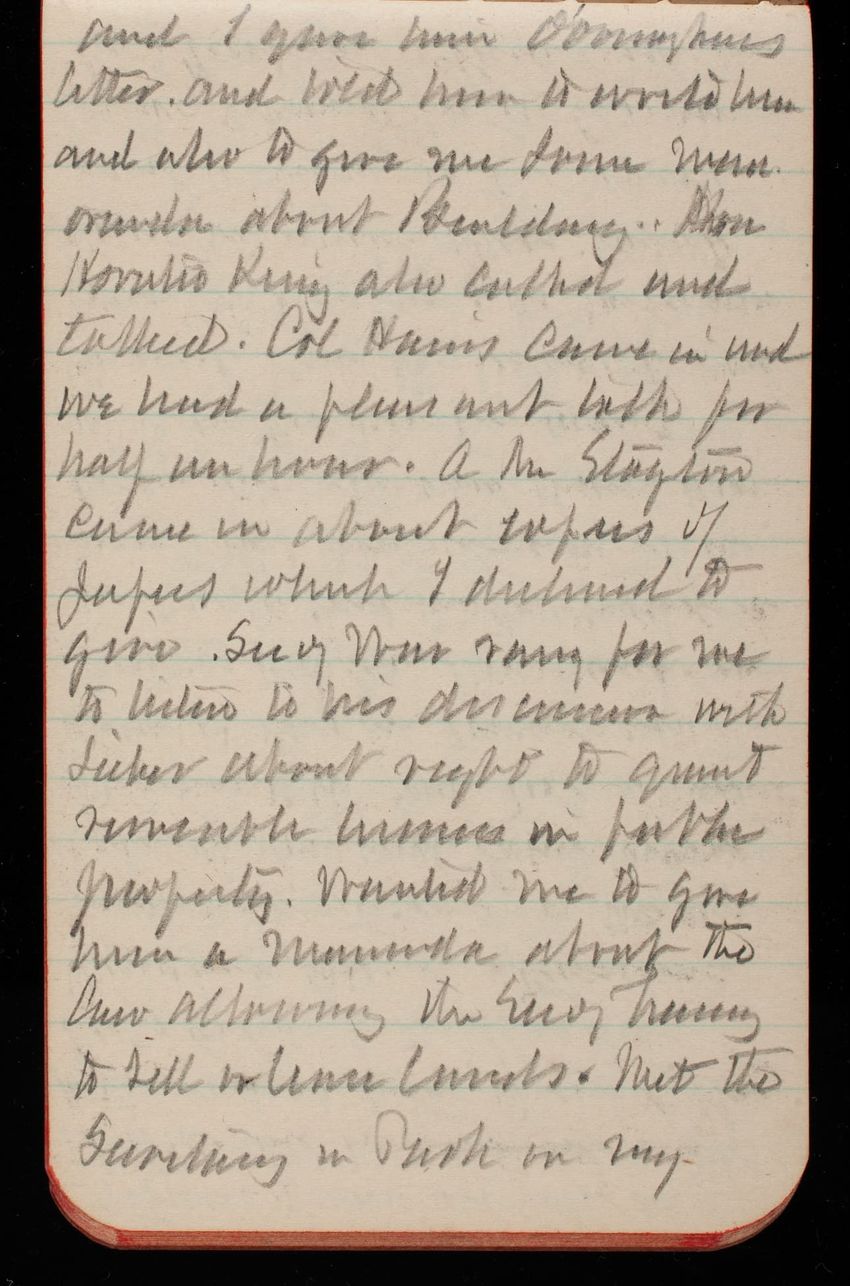 and I gave him O'Donoghues
letter. and told him to write him
and also to give me some mem
oranda about Building.. Hon
Horatio King also called and
talked. Col Harris came in and
we had a pleasant talk for
half an hour. A Mr Slayton
came in about copies of
papers which I declined to
give. Secy War rang for me
to listen to his discussion with
Lieber about right to grant
revocable licenses in public
property. Wanted me to give
him a memoranda about the
law allowing the Secy Treasury
to sell or lease lands. Met the
Secretary in Park on my